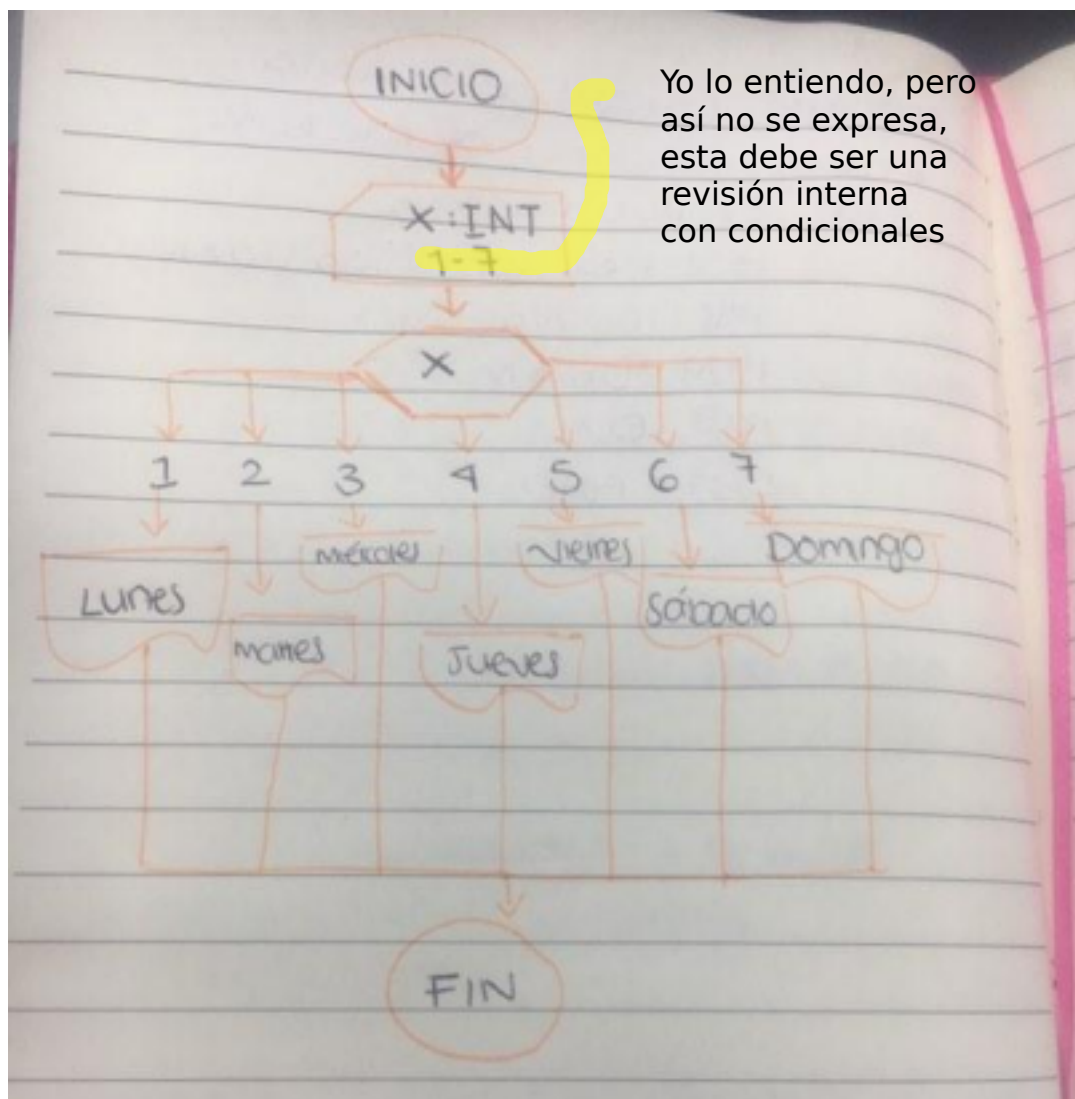 INICIO
Yo lo entiendo, pero
así no se expresa,
esta debe ser una
revisión interna
con condicionales
X:INT
1-7
X
1 2 3 4 5 6 7
Lunes
Martes
Mércoles
Jueves
Viernes
Sábado
Domingo
FIN